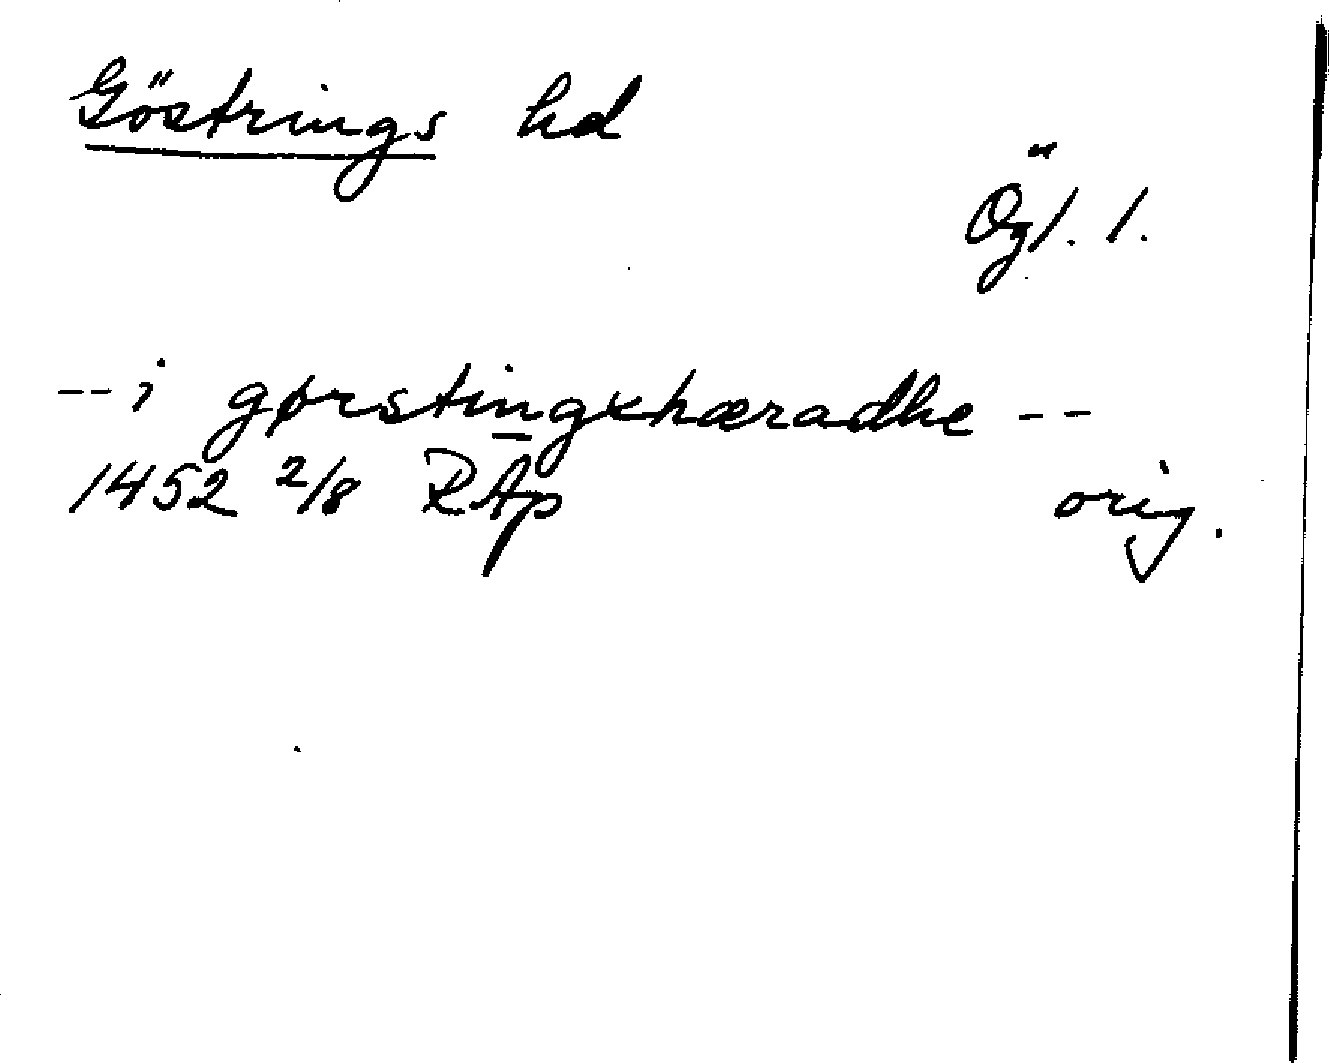 Göstrings hd
Ögl. l.
-- i gørstingxhæradhe --
1452 2/8 RAp orig.